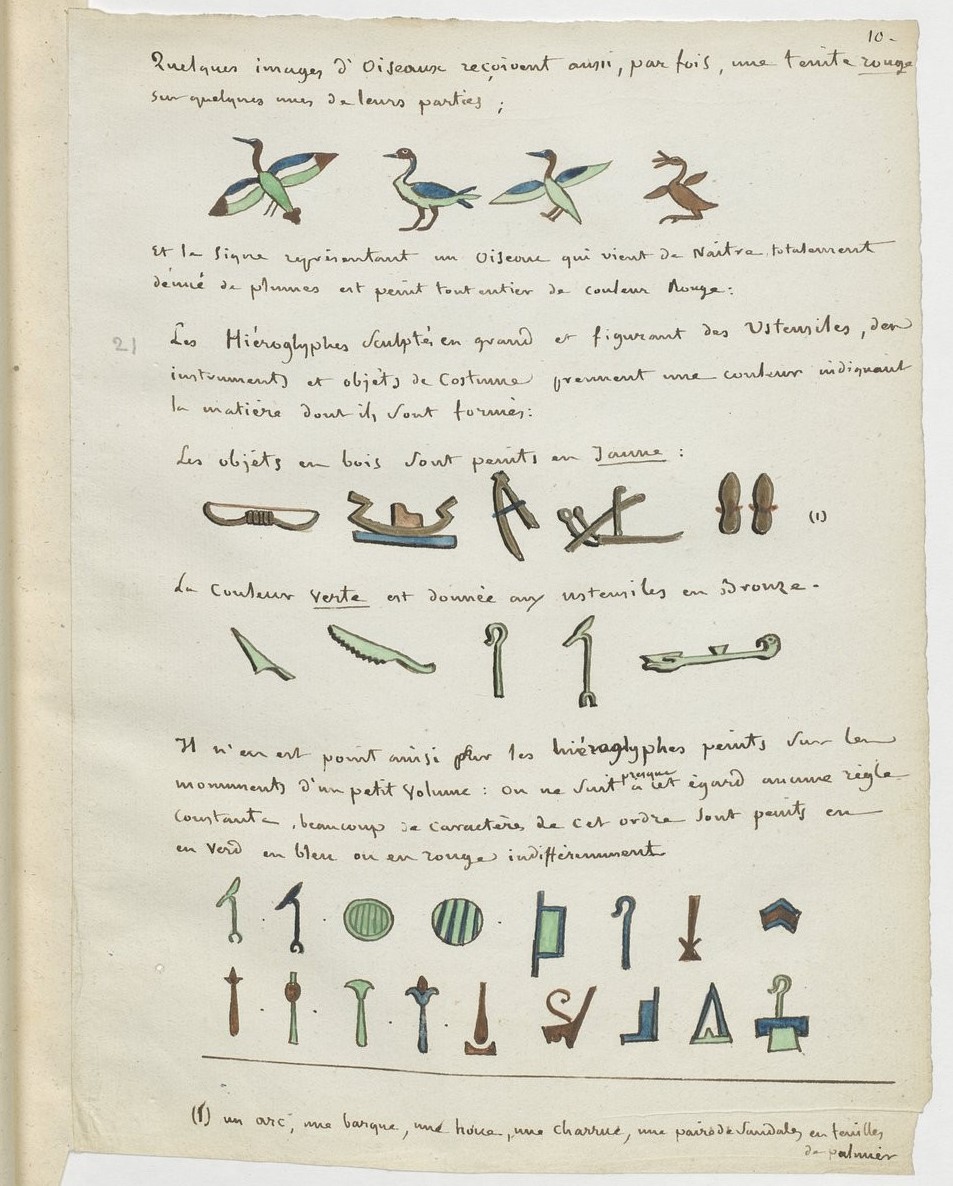 10.
Quelques images d'Oiseaux reçoivent aussi, par fois, une teinte rouge
sur quelques unes de leurs parties ;
Et le signe représentant un Oiseau qui vient de Naitre, totalement
dénué de plumes est peint tout entier de couleur Rouge :
21
Les Hiéroglyphes sculptés en grand et figurant des Ustensiles, des
instruments et objets de Costume prennent une couleur indiquant
la matière dont ils sont formés :
Les objets en bois sont peints en Jaune :
(1)
La Couleur verte est donnée aux ustensiles en Bronze.
Il n'en est point ainsi pour les hiéroglyphes peints sur les
monuments d'un petit volume : on ne suit presque à cet égard aucune règle
constante, beaucoup de caractères de cet ordre sont peints en
en verd en bleu ou en rouge indifféremment
(1) un arc, une barque, une houe, une charrue, une paire de sandales en feuilles
de palmier